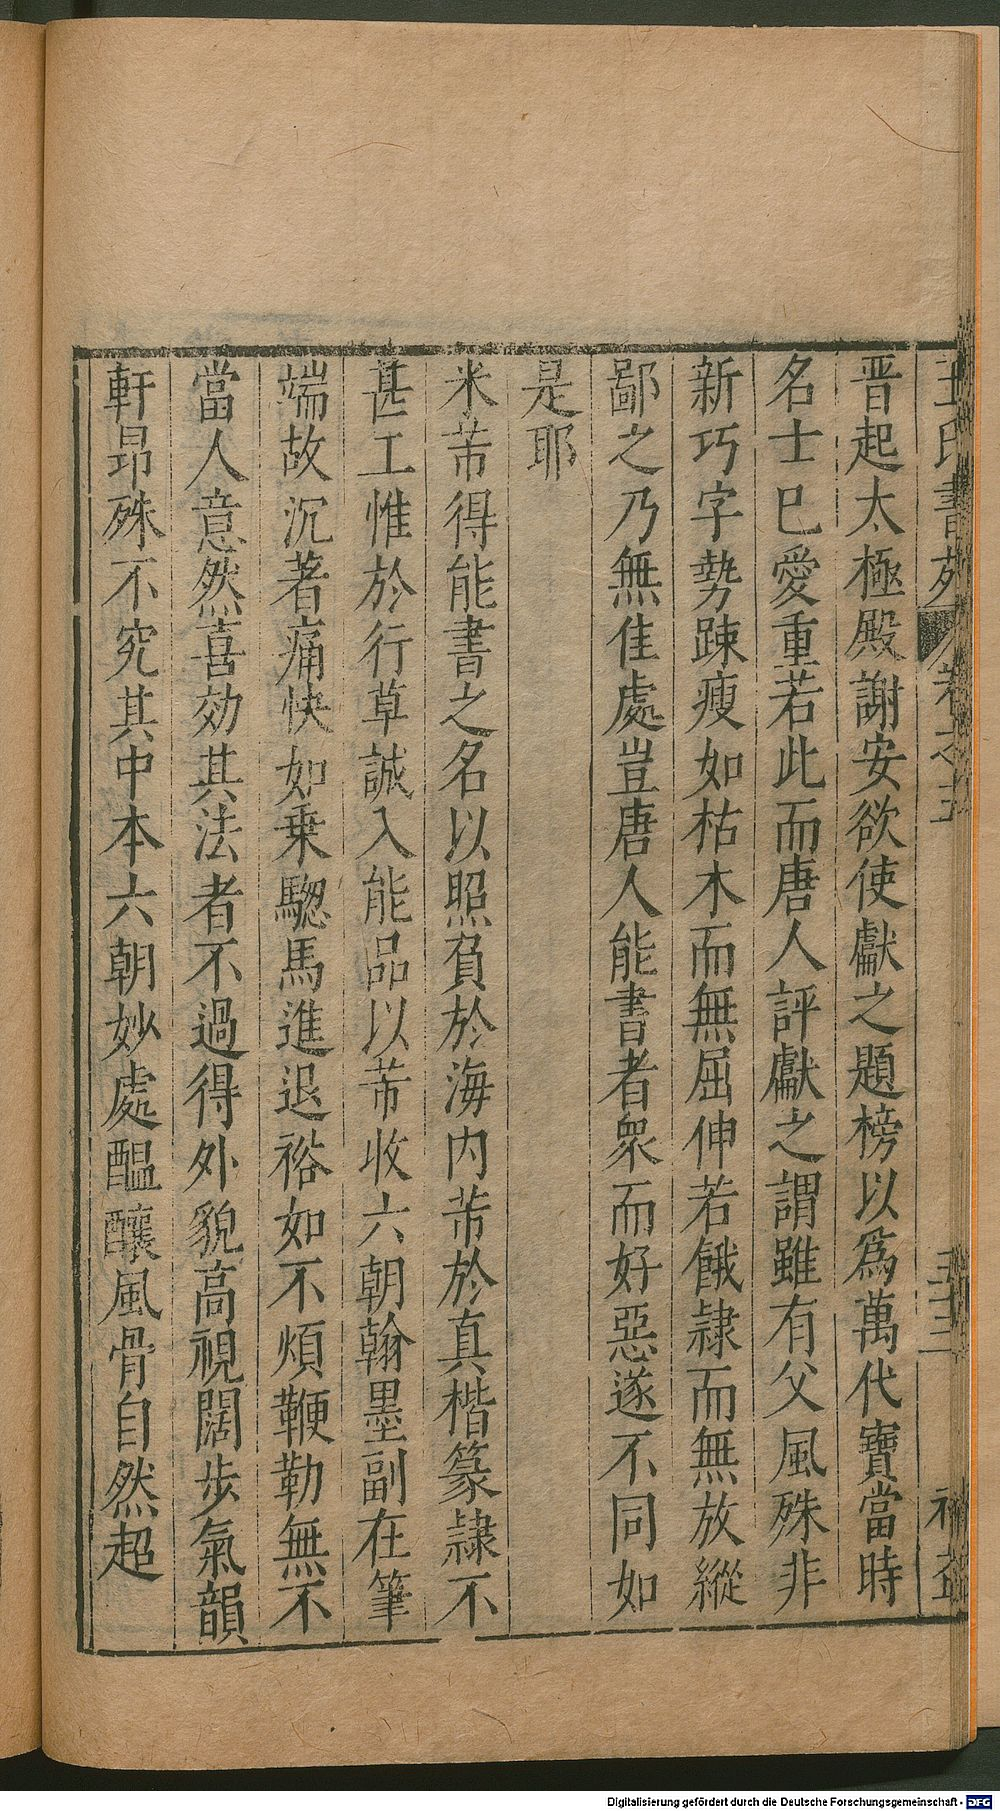 王氏書苑 卷之五 三十三 補益
晋起太極殿謝安欲使獻之題榜以爲萬代寶當時
名士巳愛重若此而唐人評獻之謂雖有父風殊非
新巧字勢踈瘦如枯木而無屈伸若餓隷而無放縱
鄙之乃無佳處豈唐人能書者衆而好惡遂不同如
是耶
米芾得能書之名以照負於海内芾於真楷篆隷不
甚工惟於行草誠入能品以芾收六朝翰墨副在筆
端故沉著痛快如乗騘馬進退裕如不煩鞭勒無不
當人意然喜効其法者不過得外貌高視闊步氣韻
軒昻殊不究其中本六朝妙處醖釀風骨自然超
Digitalisierung gefördert durch die Deutsche Forschungsgemeinschaft - DFG